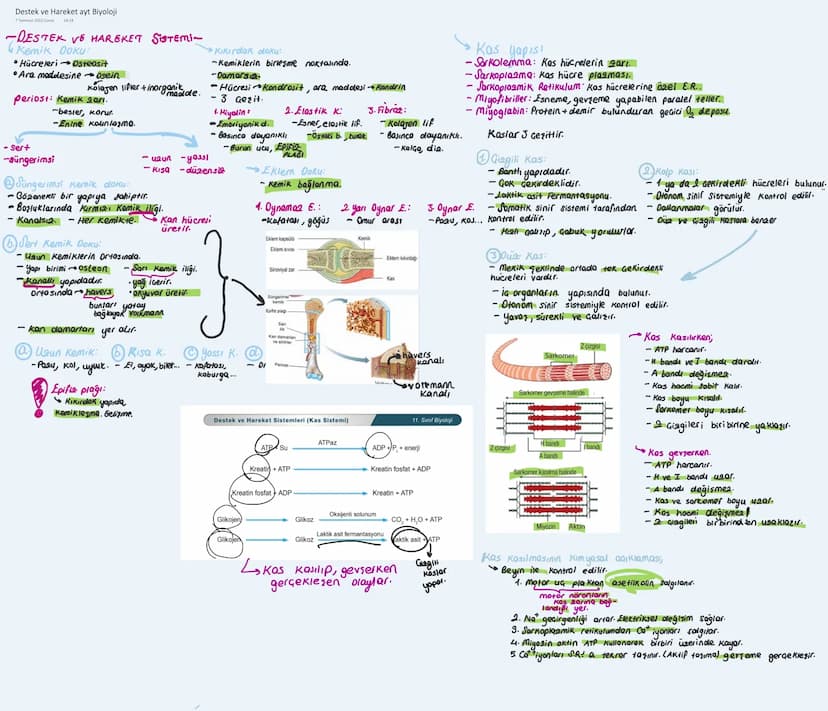 Destek ve Hareket ayt Biyoloji
7 Temmuz 2022 Cuma 14:14
—DESTEK VE HAREKET SİSTEMİ—
Kemik Doku:
• Hücreleri → Osteosit
• Ara maddesine → Osein
kolajen lifler + inorganik madde.
periost: Kemik zarı.
- besler, korur.
- Enine kalınlaşma.
- sert
- süngerimsi
- uzun - yassı
- kısa - düzensiz
a) Süngerimsi kemik doku:
- Gözenekli bir yapıya sahiptir.
- Boşluklarında kırmızı kemik iliği.
- Kanalsız - Her kemikte.
→ Kan hücresi üretir.
b) Sert Kemik Doku:
- Uzun kemiklerin ortasında.
- Yapı birimi → osteon
- Sarı kemik iliği.
- Kanallı yapıdadır.
- yağ içerir.
ortasında → havers
- akyuvar üretir
bunları yatay
bağlayan volkmann
- kan damarları yer alır.
a) Uzun Kemik:
- Pazu, kol, uyluk.
b) Kısa K.
- El, ayak, bilek...
c) Yassı K.
- kafatası, kaburga...
d)
Epifiz plağı:
→ Kıkırdak yapıda
kemikleşme. Gelişme.
Kıkırdak doku:
- Kemiklerin birleşme noktasında.
- Damarsız
- Hücresi → Kondrosit, ara maddesi → Kondrin
- 3 çeşit.
1. Hiyalin:
- Embriyonik d.
- Basınca dayanıklı
- Burun ucu, Epifiz PLAĞI
2. Elastik K:
- Esnek, elastik lif.
3. Fibröz:
- Kolajen lif
- Basınca dayanıklı.
- kalça dia.
Eklem Doku:
- Kemik bağlanma.
1. Oynamaz E:
- Kafatası, göğüs
2. Yarı Oynar E:
- Omur arası
3. Oynar E:
- Pazu, kol...
Eklem kapsülü
Kemik
Eklem sıvısı
Eklem kıkırdağı
Sinoviyal zar
Kas
Süngerimsi kemik
Kıkırdak plağı
Sarı ilik
Kan damarları ve sinirler
Periost
havers kanalı
volkmann kanalı
Destek ve Hareket Sistemleri (Kas Sistemi)
11. Sınıf Biyoloji
ATP + Su ATPaz ADP + Pi + enerji
Kreatin + ATP Kreatin fosfat + ADP
Kreatin fosfat + ADP Kreatin + ATP
Glikojen Glikoz Oksijenli solunum CO2 + H2O + ATP
Glikojen Glikoz Laktik asit fermantasyonu Laktik asit + ATP
Çizgili kaslar yapar.
→ Kas kasılıp, gevşerken
gerçekleşen olaylar.
Kas Yapısı
- Sarkolemma: Kas hücrelerin zarı.
- Sarkoplazma: Kas hücre plazması.
- Sarkoplazmik Retikulum: Kas hücrelerine özel E.R.
- Miyofibriller: Esneme, gevşeme yapabilen paralel teller.
- Miyoglobin: Protein + demir bulunduran geçici O2 deposu
Kaslar 3 çeşittir.
1) Çizgili Kas:
- Bantlı yapıdadır.
- Çok çekirdeklidir.
- Laktik asit fermantasyonu.
- Somatik sinir sistemi tarafından
kontrol edilir.
- Hızlı çalışıp, çabuk yorulurlar.
2) Kalp kası:
- 1 ya da 2 çekirdekli hücreleri bulunur.
- Otonom sinir sistemiyle kontrol edil.
- Dallanmalar görülür.
- Düz ve çizgili kaslara benzer
3) Düz Kas:
- Mekik şeklinde ortada tek çekirdekli
hücreleri vardır.
- iç organların yapısında bulunur.
- Otonom sinir sistemiyle kontrol edilir.
- Yavaş, sürekli ve çalışır.
Z çizgisi
Sarkomer
Sarkomer gevşeme halinde
Z çizgisi
H bandı
I bandı
A bandı
Sarkomer kasılma halinde
Miyozin
Aktin
→ Kas kasılırken;
- ATP harcanır.
- H bandı ve I bandı daralır.
- A bandı değişmez.
- Kas hacmi sabit kalır.
- Kas boyu kısalır.
- Sarkomer boyu kısalır.
- Z çizgileri birbirine yaklaşır.
→ Kas gevşerken.
- ATP harcanır.
- H ve I bandı uzar.
- A bandı değişmez
- Kas ve sarkomer boyu uzar.
- Kas hacmi değişmez!
- Z çizgileri birbirinden uzaklaşır.
Kas kasılmasının kimyasal açıklaması;
→ Beyin ile kontrol edilir.
1. Motor uç plaktan asetilkolin salgılanır.
motor nöronların
kas zarına bağ-
landığı yer.
2. Na+ geçirgenliği artar. Elektriksel değişim sağlar.
3. Sarkoplazmik retikulumdan Ca+ iyonları salgılar.
4. Miyozin aktin ATP kullanarak birbiri üzerinde kayar.
5. Ca+ iyonları SR'a tekrar taşınır. (Aktif taşıma) gevşeme gerçekleşir.